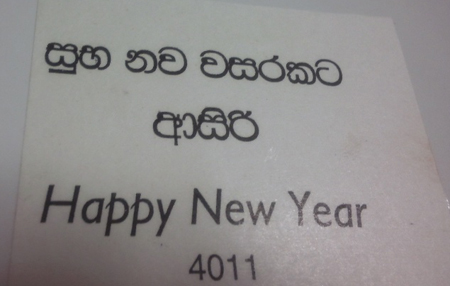 සුභ නව වසරකට
ආසිරි
Happy New Year
4011